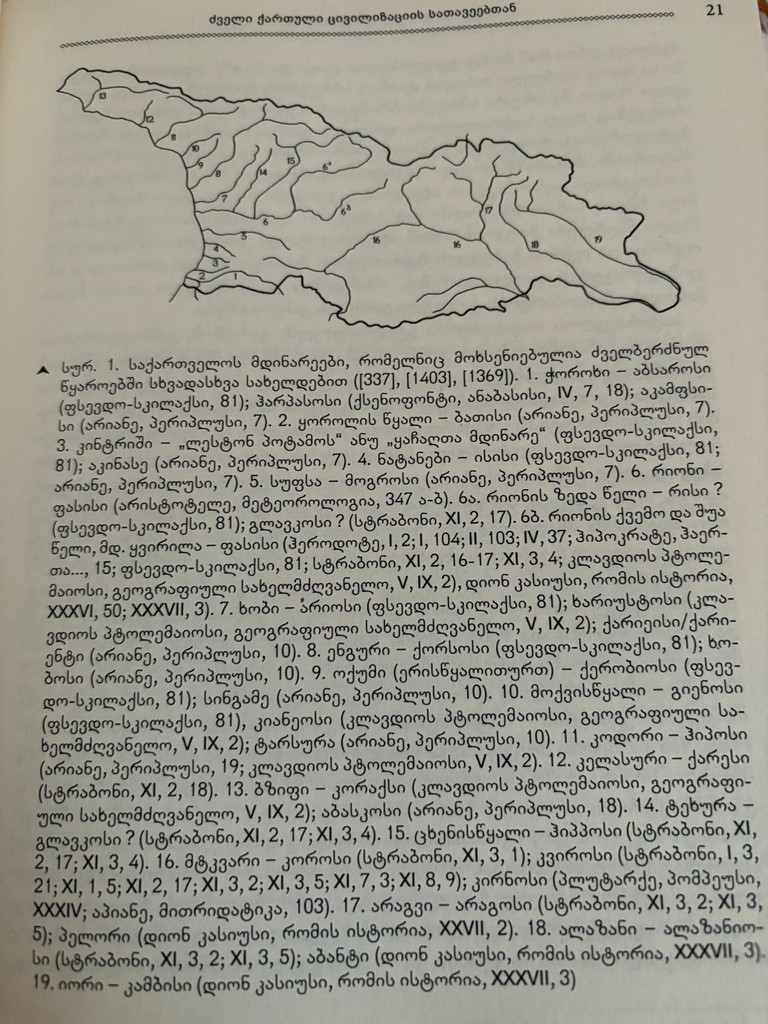 ძველი ქართული ცივილიზაციის სათავეებთან
21
13
12
11
10
9
8
7
14
15
6ᵃ
6ᵇ
6
5
4
3
2
1
16
16
17
18
19
სურ. 1. საქართველოს მდინარეები, რომელნიც მოხსენიებულია ძველბერძნულ
წყაროებში სხვადასხვა სახელდებით ([337], [1403], [1369]). 1. ჭოროხი – აბსაროსი
(ფსევდო-სკილაქსი, 81); ჰარპასოსი (ქსენოფონტი, ანაბასისი, IV, 7, 18); აკამფსი-
სი (არიანე, პერიპლუსი, 7). 2. ყოროლის წყალი – ბათისი (არიანე, პერიპლუსი, 7).
3. კინტრიში – „ლესტონ პოტამოს“ ანუ „ყაჩაღთა მდინარე“ (ფსევდო-სკილაქსი,
81); აკინასე (არიანე, პერიპლუსი, 7). 4. ნატანები – ისისი (ფსევდო-სკილაქსი, 81;
არიანე, პერიპლუსი, 7). 5. სუფსა – მოგროსი (არიანე, პერიპლუსი, 7). 6. რიონი –
ფასისი (არისტოტელე, მეტეოროლოგია, 347 ა-ბ). 6ა. რიონის ზედა წელი – რისი ?
(ფსევდო-სკილაქსი, 81); გლავკოსი ? (სტრაბონი, XI, 2, 17). 6ბ. რიონის ქვემო და შუა
წელი, მდ. ყვირილა – ფასისი (ჰეროდოტე, I, 2; I, 104; II, 103; IV, 37; ჰიპოკრატე, ჰაერ-
თა..., 15; ფსევდო-სკილაქსი, 81; სტრაბონი, XI, 2, 16-17; XI, 3, 4; კლავდიოს პტოლე-
მაიოსი, გეოგრაფიული სახელმძღვანელო, V, IX, 2), დიონ კასიუსი, რომის ისტორია,
XXXVI, 50; XXXVII, 3). 7. ხობი – არიოსი (ფსევდო-სკილაქსი, 81); ხარიუსტოსი (კლა-
ვდიოს პტოლემაიოსი, გეოგრაფიული სახელმძღვანელო, V, IX, 2); ქარიეისი/ქარი-
ენტი (არიანე, პერიპლუსი, 10). 8. ენგური – ქორსოსი (ფსევდო-სკილაქსი, 81); ხო-
ბოსი (არიანე, პერიპლუსი, 10). 9. ოქუმი (ერისწყალითურთ) – ქერობიოსი (ფსევ-
დო-სკილაქსი, 81); სინგამე (არიანე, პერიპლუსი, 10). 10. მოქვისწყალი – გიენოსი
(ფსევდო-სკილაქსი, 81), კიანეოსი (კლავდიოს პტოლემაიოსი, გეოგრაფიული სა-
ხელმძღვანელო, V, IX, 2); ტარსურა (არიანე, პერიპლუსი, 10). 11. კოდორი – ჰიპოსი
(არიანე, პერიპლუსი, 19; კლავდიოს პტოლემაიოსი, V, IX, 2). 12. კელასური – ქარესი
(სტრაბონი, XI, 2, 18). 13. ბზიფი – კორაქსი (კლავდიოს პტოლემაიოსი, გეოგრაფი-
ული სახელმძღვანელო, V, IX, 2); აბასკოსი (არიანე, პერიპლუსი, 18). 14. ტეხურა –
გლავკოსი ? (სტრაბონი, XI, 2, 17; XI, 3, 4). 15. ცხენისწყალი – ჰიპპოსი (სტრაბონი, XI,
2, 17; XI, 3, 4). 16. მტკვარი – კოროსი (სტრაბონი, XI, 3, 1); კვიროსი (სტრაბონი, I, 3,
21; XI, 1, 5; XI, 2, 17; XI, 3, 2; XI, 3, 5; XI, 7, 3; XI, 8, 9); კირნოსი (პლუტარქე, პომპეუსი,
XXXIV; აპიანე, მითრიდატიკა, 103). 17. არაგვი – არაგოსი (სტრაბონი, XI, 3, 2; XI, 3,
5); პელორი (დიონ კასიუსი, რომის ისტორია, XXVII, 2). 18. ალაზანი – ალაზანიო-
სი (სტრაბონი, XI, 3, 2; XI, 3, 5); აბანტი (დიონ კასიუსი, რომის ისტორია, XXXVII, 3).
19. იორი – კამბისი (დიონ კასიუსი, რომის ისტორია, XXXVII, 3)